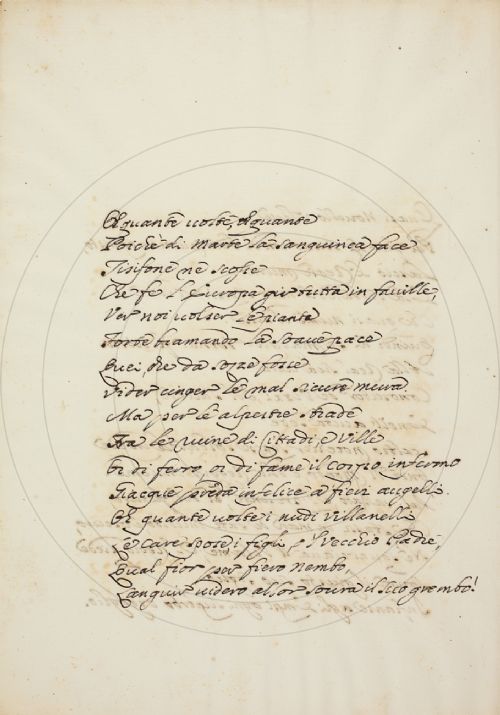 O quante uolte, o quante
Poiche di Marte la sanguinea face
Tisifone ne scosse
Che fe l'Europa gir tutta in fauille,
Ver noi uolser le piante
Forse bramando la soaue pace
Quei che da
Vider cinger le mal sicure mura
Ma per le alpestre strade
Fra le ruine di Cittadi, e Ville
Or di ferro, or di fame il corpo infermo
Giacque preda infelice a fieri augelli.
O quante uolte i nudi Villanelli
Le care spose i figli, e'l Vecchio Padre,
Qual fior per fiero nembo,
Languir uidero allor soura il grembo!